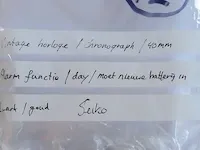 vintage horloge / chronograph / 40mm
alarm functie / day / moet nieuwe batterij in
/ goud Seiko